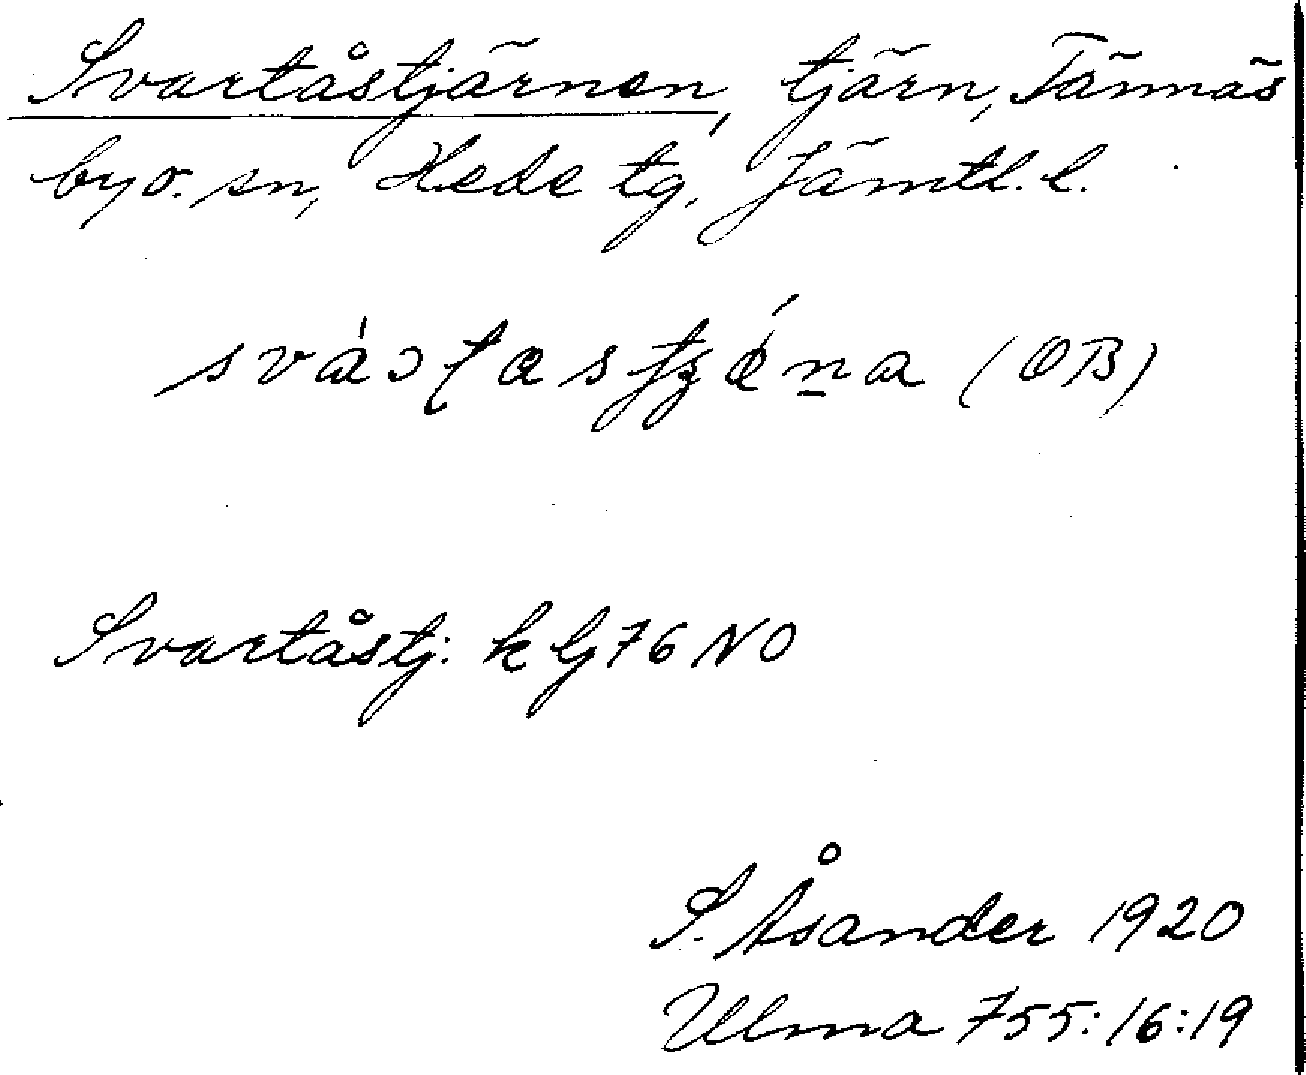 Svartåstjärnen, tjärn, Tännäs
by o. sn, Hede tg, Jämtl. l.
(OB)
Svartåstj: k Gj 76 NO
S. Åsander 1920
Ulma 755:16:19